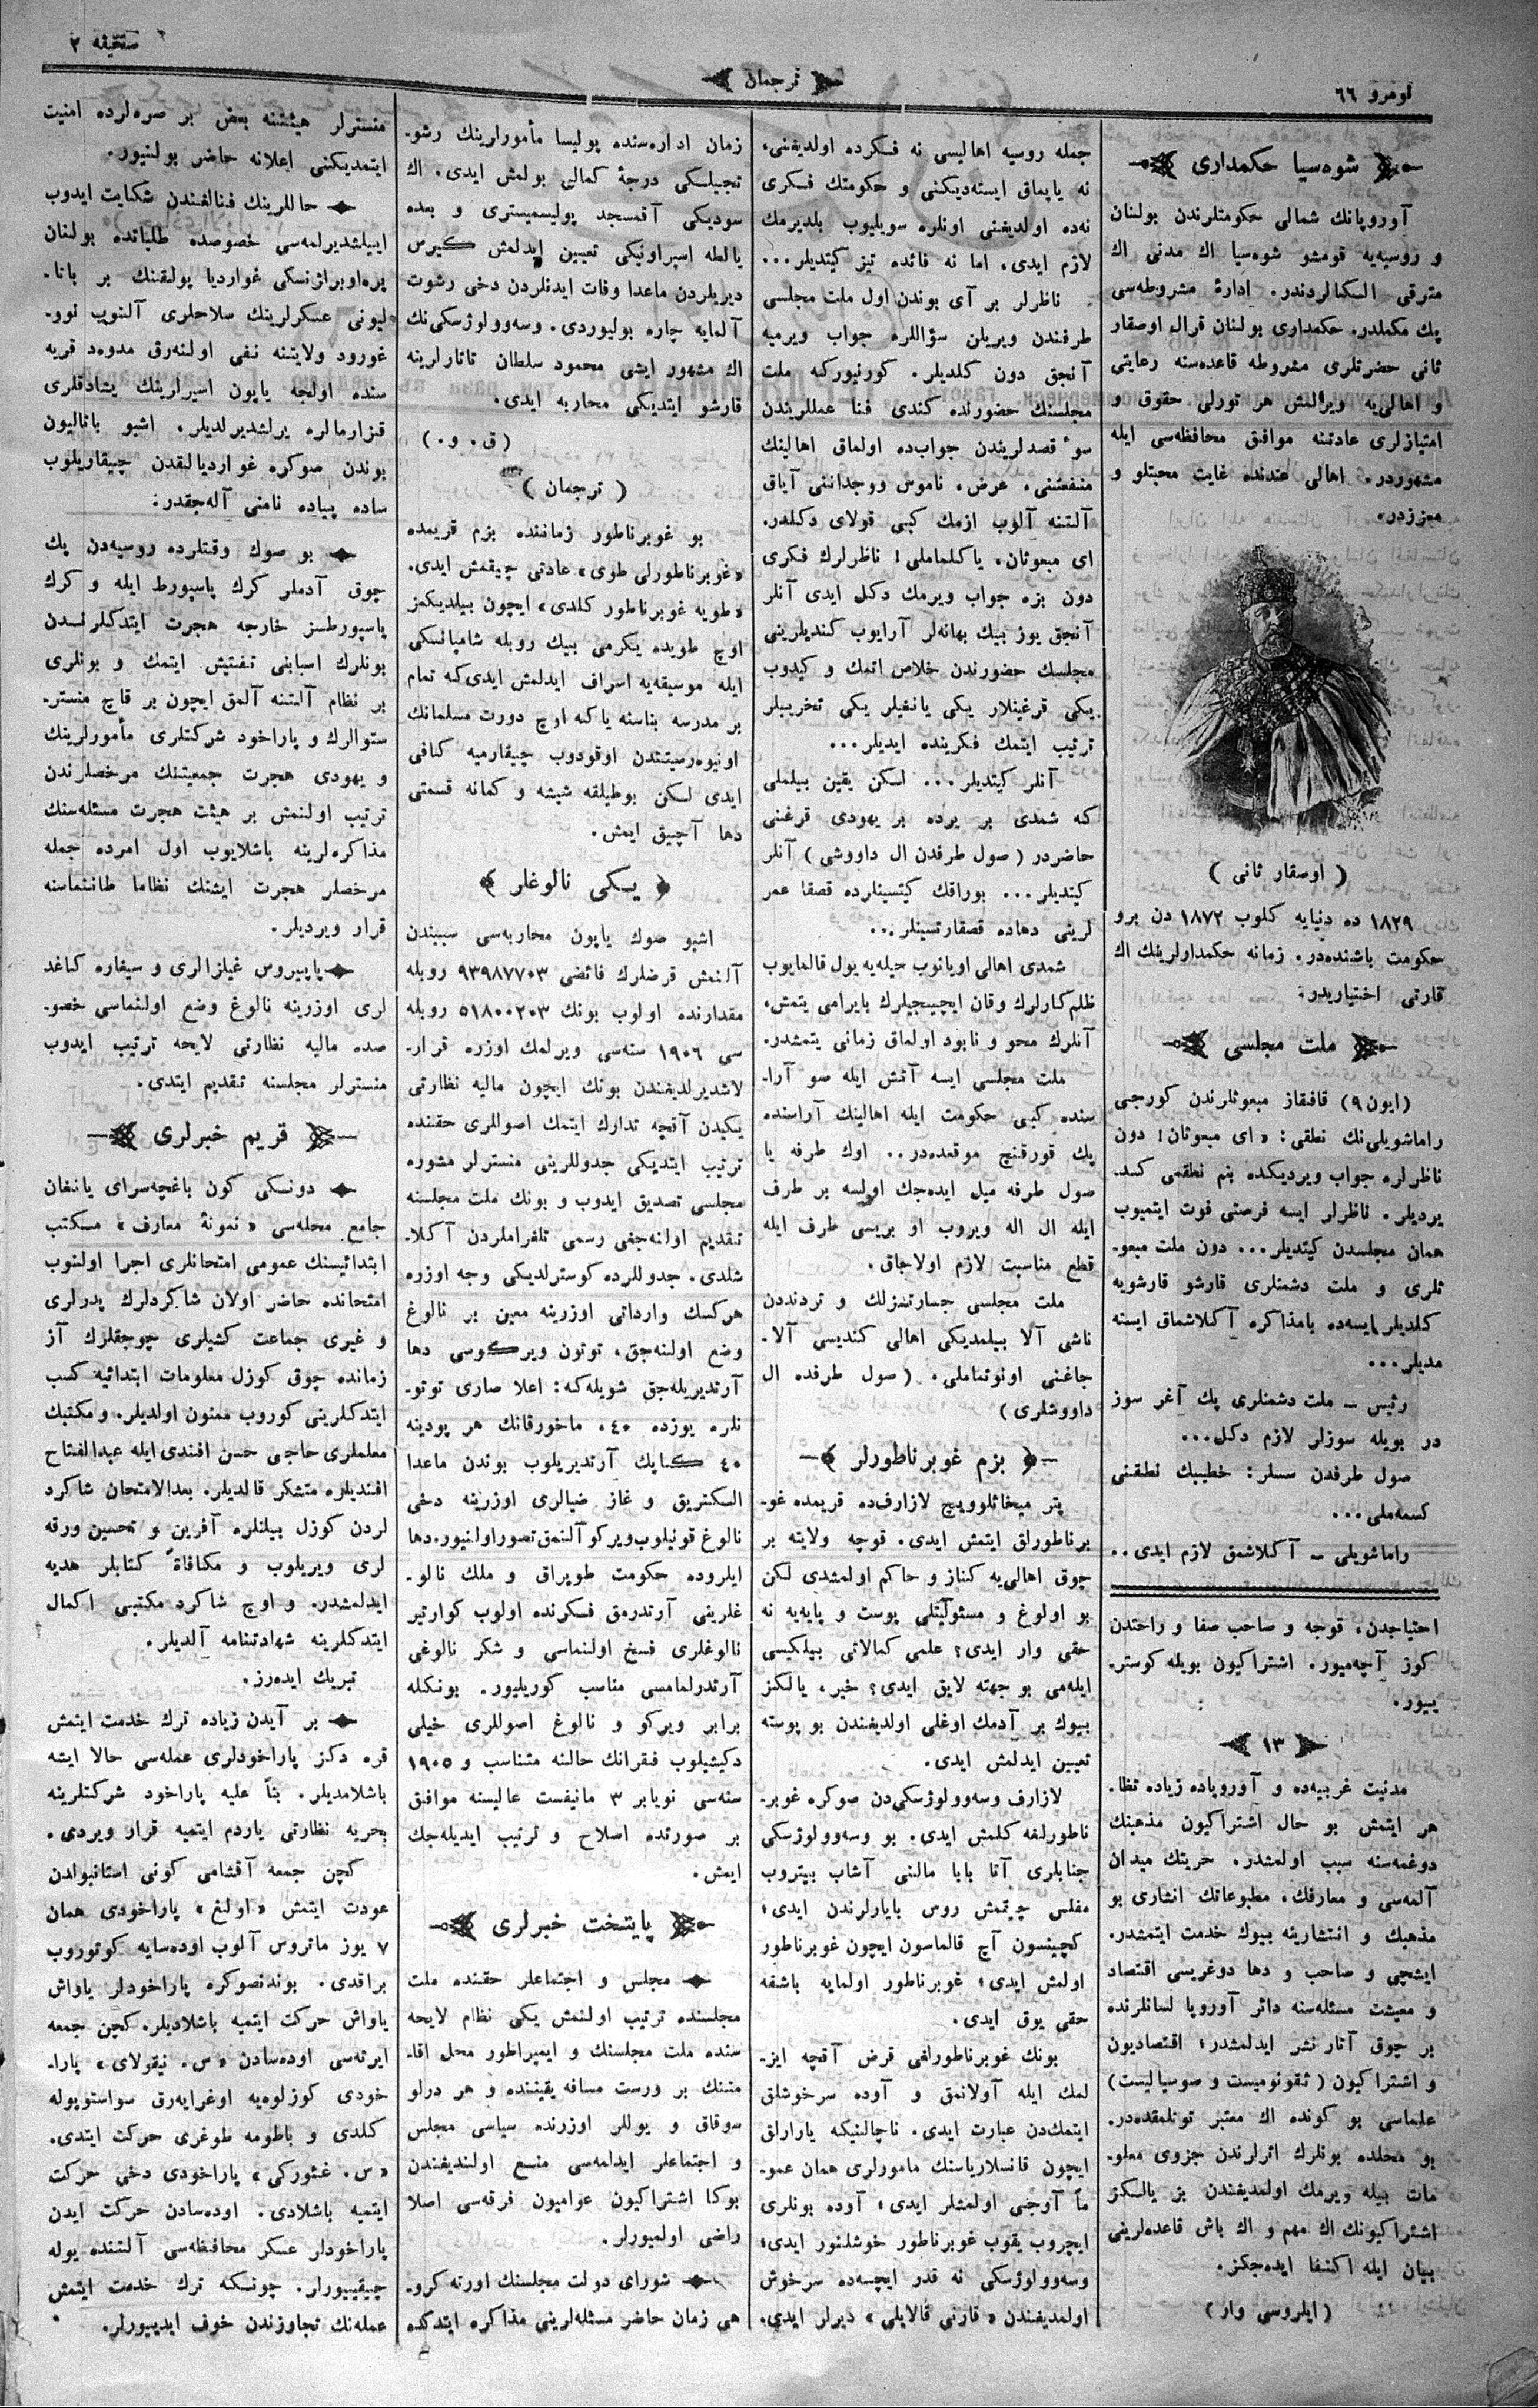 نومرو ٦٦
ترجمان
صحيفه ٢
شوه‌سيا حكمدارى
آوروپانك شمالى حكومتلرندن بولنان
و روسيه‌يه قومشو شوه‌سيا اك مدنى اك
مترقى الكالردندر. ادارۀ مشروطه‌سى
پك مكملدر. حكمدارى بولنان قرال اوصقار
ثانى حضرتلرى مشروطه قاعده‌سنه رعايتى
و اهالى‌يه ويرلمش هر تورلى حقوق و
امتيازلرى عادتنه موافق محافظه‌سى ايله
مشهوردر. اهالى عندنده غايت محبتلو و
معززدر.
( اوصقار ثانى )
١٨٢٩ ده دنيايه كلوب ١٨٧٢ دن برو
حكومت باشنده‌در. زمانه حكمدارلرينك اك
قارتى اختياريدر.
ملت مجلسى
(ايون ٩) قافقاز مبعوثلرندن كورجى
راماشويلى‌نك نطقى: «اى مبعوثان! دون
ناظرلره جواب ويرديكده بنم نطقمى كسد-
يرديلر. ناظرلر ايسه فرصتى فوت ايتميوب
همان مجلسدن كيتديلر... دون ملت مبعو-
ثلرى و ملت دشمنلرى قارشو قارشويه
كلديلر ايسه‌ده بامذاكره آكلاشماق ايسته
مديلر...
رئيس ــ ملت دشمنلرى پك آغر سوز
در بويله سوزلر لازم دكل...
صول طرفدن سسلر: خطيبك نطقنى
كسمه‌ملى...
راماشويلى ــ آكلاشمق لازم ايدى..
احتياجدن، قوجه و صاحب صفا و راحتدن
كوز آچه‌ميور. اشتراكيون بويله كوستر-
ييور.
١٣
مدنيت غربيه‌ده و آوروپاده زياده تظا-
هر ايتمش بو حال اشتراكيون مذهبنك
دوغمه‌سنه سبب اولمشدر. حريتك ميدان
آلمه‌سى و معارفك، مطبوعاتك انشارى بو
مذهبك و انتشارينه بيوك خدمت ايتمشدر.
ايشچى و صاحب و دها دوغريسى اقتصاد
و معيشت مسئله‌سنه دائر آوروپا لسانلرنده
بر چوق آثار نشر ايدلمشدر؛ اقتصاديون
و اشتراكيون (ئقونوميست و صوسياليست)
علماسى بو كونده اك معتبر تونلمقده‌در.
بو محلده بونلرك اثرلرندن جزوى معلو-
مات بيله ويرمك اولمديغندن بز يالكز
اشتراكيونك اك مهم و اك باش قاعده‌لرينى
بيان ايله اكتفا ايده‌جكز.
(ايلروسى وار)
جمله روسيه اهاليسى نه فكرده اولديغنى،
نه ياپماق ايسته‌ديكنى و حكومتك فكرى
نه‌ده اولديغنى اونلره سويليوب بلديرمك
لازم ايدى، اما نه فائده تيز كيتديلر...
ناظرلر بر آى بوندن اول ملت مجلسى
طرفندن ويريلن سؤاللره جواب ويرميه
آنجق دون كلديلر. كورنيوركه ملت
مجلسنك حضورنده كندى فنا عمللريندن
سوء قصدلريندن جواب‌ده اولماق اهالينك
منفعتنى، عرض، ناموس ووجداننى آياق
آلتنه آلوب ازمك كبى قولاى دكلدر.
اى مبعوثان، ياكلماملى! ناظرلرك فكرى
دون بزه جواب ويرمك دكل ايدى آنلر
آنجق يوز بيك بهانه‌لر آرايوب كنديلرينى
مجلسك حضورندن خلاص اتمك و كيدوب
يكى قرغينلار يكى يانغيلر يكى تخريبلر
ترتيب ايتمك فكرينده ايديلر...
آنلر كيتديلر... لسكن يقين بيلملى
كه شمدى بر يرده بر يهودى قرغنى
حاضردر (صول طرفدن ال داووشى) آنلر
كيتديلر... بوراقك كيتسينلرده قصقا عمر
لرينى دهاده قصقارتسينلر...
شمدى اهالى اويانوب حيله‌يه يول قالمايوب
ظلمكارلرك وقان ايچيجيلرك بايرامى يتمش،
آنلرك محو و نابود اولماق زمانى يتمشدر.
ملت مجلسى ايسه آتش ايله صو آرا-
سنده كبى حكومت ايله اهالينك آراسنده
پك قورقنج موقعده‌در.. اوك طرفه يا
صول طرفه ميل ايده‌جك اولسه بر طرف
ايله ال اله ويروب او بريسى طرف ايله
قطع مناسبت لازم اولاجاق.
ملت مجلسى جسارتسزلك و ترددندن
ناشى آلا بيلمديكى اهالى كنديسى آلا-
جاغنى اونوتماملى. (صول طرفده ال
داووشلرى)
بزم غوبرناطورلر
پتر ميخائلوويچ لازارف‌ده قريمده غو-
برناطورلق ايتمش ايدى. قوچه ولايته بر
چوق اهالى‌يه كناز و حاكم اولمشدى لكن
بو اولوغ و مسئوليتلى پوست و پايه‌يه نه
حقى وار ايدى؟ علمى كمالاتى بيلكيسى
ايله‌مى بو جهته لايق ايدى؟ خير، يالكز
بيوك بر آدمك اوغلى اولديغندن بو پوسته
تعيين ايدلمش ايدى.
لازارف وسه‌وولوژسكى‌دن صوكره غوبر-
ناطورلغه كلمش ايدى. بو وسه‌وولوژسكى
جنابلرى آتا بابا مالنى آشاب بيتروب
مفلس چيتمش روس بايارلرندن ايدى؛
كچينسون آچ قالماسون ايچون غوبرناطور
اولمش ايدى؛ غوبرناطور اولمايه باشقه
حقى يوق ايدى.
بونك غوبرناطورلغى قرض آقچه ايز-
لمك ايله آولانمق و آوده سرخوشلق
ايتمك‌دن عبارت ايدى. ناچالنيكه يارارلق
ايچون قانسلارياسنك مامورلرى همان عمو-
ماً آوجى اولمشلر ايدى؛ آوده بونلرى
ايچروب يقوب غوبرناطور خوشلنور ايدى؛
وسه‌وولوژسكى نه قدر ايچسه‌ده سرخوش
اولمديغندن «قارنى قالايلى» ديرلر ايدى.
زمان اداره‌سنده پوليسا مأمورلرينك رشو-
تجيلسكى درجۀ كمالى بولمش ايدى. اك
سوديكى آقمسجد پوليسميسترى و بعده
يالطه اسپراونيكى تعيين ايدلمش كيرس
ديريلردن ماعدا وفات ايدنلردن دخى رشوت
آلمايه چاره بوليوردى. وسه‌وولوژسكى‌نك
اك مشهور ايشى محمود سلطان تاتارلرينه
قارشو ايتديكى محاربه ايدى.
(ق. و.)
(ترجمان)
بو غوبرناطور زماننده بزم قريمده
«غوبرناطورلى طوى» عادتى چيقمش ايدى.
«طويه غوبرناطور كلدى» ايچون بيلديكمز
اوچ طويده يكرمى بيك روبله شامپانسكى
ايله موسيقه‌يه اسراف ايدلمش ايدى‌كه تمام
بر مدرسه بناسنه ياكه اوچ دورت مسلمانك
اونيوه‌رسيتتدن اوقودوب چيقارميه كافى
ايدى لسكن بوطيلقه شيشه و كمانه قسمتى
دها آچيق ايمش.
يكى نالوغلر
اشبو صوك ياپون محاربه‌سى سببندن
آلنمش قرضلرك فائضى ٩٣٩٨٧٧٠٣ روبله
مقدارنده اولوب بونك ٥١٨٠٠٢٠٣ روبله
سى ١٩٠٦ سنه‌سى ويرلمك اوزره قرار-
لاشديرلديغندن بونك ايچون ماليه نظارتى
يكيدن آقچه تدارك ايتمك اصوللرى حقنده
ترتيب ايتديكى جدوللرينى منسترلر مشوره
مجلسى تصديق ايدوب و بونك ملت مجلسنه
تقديم اولنه‌جغى رسمى تلغراملردن آكلا-
شلدى. جدوللرده كوسترلديكى وجه اوزره
هركسك وارداتى اوزرينه معين بر نالوغ
وضع اولنه‌جق، توتون ويركوسى دها
آرتديريله‌جق شويله‌كه: اعلا صارى توتو-
نلره يوزده ٤٠، ماخورقانك هر پودينه
٤٠ كپايك آرتديريلوب بوندن ماعدا
الكتريق و غاز ضيالرى اوزرينه دخى
نالوغ قونيلوب ويركو آلنمق تصور اولنيور. دها
ايلروده حكومت طوپراق و ملك نالو-
غلرينى آرتدرمق فكرنده اولوب كوارتير
نالوغلرى فسخ اولنماسى و شكر نالوغى
آرتدرلمامسى مناسب كوريليور. بونكله
برابر ويركو و نالوغ اصوللرى خيلى
دكيشيلوب فقرانك حالنه متناسب و ١٩٠٥
سنه‌سى نويابر ٣ مانيفست عاليسنه موافق
بر صورتده اصلاح و ترتيب ايديله‌جك
ايمش.
پايتخت خبرلرى
مجلس و اجتماعلر حقنده ملت
مجلسنده ترتيب اولنمش يكى نظام لايحه
سنده ملت مجلسنك و ايمپراطور محل اقا-
متنك بر ورست مسافه يقيننده و هر درلو
سوقاق و يوللر اوزرنده سياسى مجلس
و اجتماعلر ايدلمه‌سى منع اولنديغندن
بوكا اشتراكيون عواميون فرقه‌سى اصلا
راضى اولميورلر.
شوراى دولت مجلسنك اورته كرو-
هى زمان حاضر مسئله‌لرينى مذاكره ايتدكده
منسترلر هيئتنه بعض بر صره‌لرده امنيت
ايتمديكنى اعلانه حاضر بولنيور.
حاللرينك فنالغندن شكايت ايدوب
اييلشديرلمه‌سى خصوصده طلباتده بولنان
پره‌اوبراژنسكى غوارديا پولقنك بر باتا-
ليونى عسكرلرينك سلاحلرى آلنوب نوو-
غورود ولايتنه نفى اولنه‌رق مدوه‌د قريه
سنده اولجه ياپون اسيرلرينك يشادقلرى
قزارمالره يرلشديرلديلر. اشبو باتاليون
بوندن صوكره غوارديالقدن چيقاريلوب
ساده پياده نامنى آله‌جقدر.
بو صوك وقتلرده روسيه‌دن پك
چوق آدملر كرك پاسپورط ايله و كرك
پاسپورطسز خارجه هجرت ايتدكلرندن
بونلرك اسبابنى تفتيش ايتمك و بونلرى
بر نظام آلتنه آلمق ايچون بر قاچ منستر-
ستوالرك و پاراخود شركتلرى مأمورلرينك
و يهودى هجرت جمعيتنك مرخصلرندن
ترتيب اولنمش بر هيئت هجرت مسئله‌سنك
مذاكره‌لرينه باشلايوب اول امرده جمله
مرخصلر هجرت ايشنك نظاما طانتماسنه
قرار ويرديلر.
پاپيروس غيلزالرى و سيغاره كاغد
لرى اوزرينه نالوغ وضع اولنماسى خصو-
صده ماليه نظارتى لايحه ترتيب ايدوب
منسترلر مجلسنه تقديم ايتدى.
قريم خبرلرى
دونكى كون باغچه‌سراى يانغان
جامع محله‌سى «نمونۀ معارف» مكتب
ابتدائيسنك عمومى امتحانلرى اجرا اولنوب
امتحانده حاضر اولان شاكردلرك پدرلرى
و غيرى جماعت كشيلرى چوجقلرك آز
زمانده چوق كوزل معلومات ابتدائيه كسب
ايتدكلرينى كوروب ممنون اولديلر. و مكتبك
معلملرى حاجى حسن افندى ايله عبدالفتاح
افنديلره متشكر قالديلر. بعدالامتحان شاكرد
لردن كوزل بيلنلره آفرين و تحسين ورقه
لرى ويريلوب و مكافاة كتابلر هديه
ايدلمشدر. و اوچ شاكرد مكتبى اكمال
ايتدكلرينه شهادتنامه آلديلر.
تبريك ايده‌رز.
بر آيدن زياده ترك خدمت ايتمش
قره دكز پاراخودلرى عمله‌سى حالا ايشه
باشلامديلر. بناً عليه پاراخود شركتلرينه
بحريه نظارتى ياردم ايتميه قرار ويردى.
كچن جمعه آقشامى كونى استانبولدن
عودت ايتمش «اولغ» پاراخودى همان
٧ يوز ماتروس آلوب اوده‌سايه كوتوروب
براقدى. بوندنصوكره پاراخودلر ياواش
ياواش حركت ايتميه باشلاديلر. كچن جمعه
ايرته‌سى اوده‌سادن «س. نيقولاى» پارا-
خودى كوزلوه‌يه اوغرايه‌رق سواستوپوله
كلدى و باطومه طوغرى حركت ايتدى.
«س. غئوركى» پاراخودى دخى حركت
ايتميه باشلادى. اوده‌سادن حركت ايدن
پاراخودلر عسكر محافظه‌سى آلتنده يوله
چيقييورلر. چونكه ترك خدمت ايتمش
عمله‌نك تجاوزندن خوف ايدييورلر.